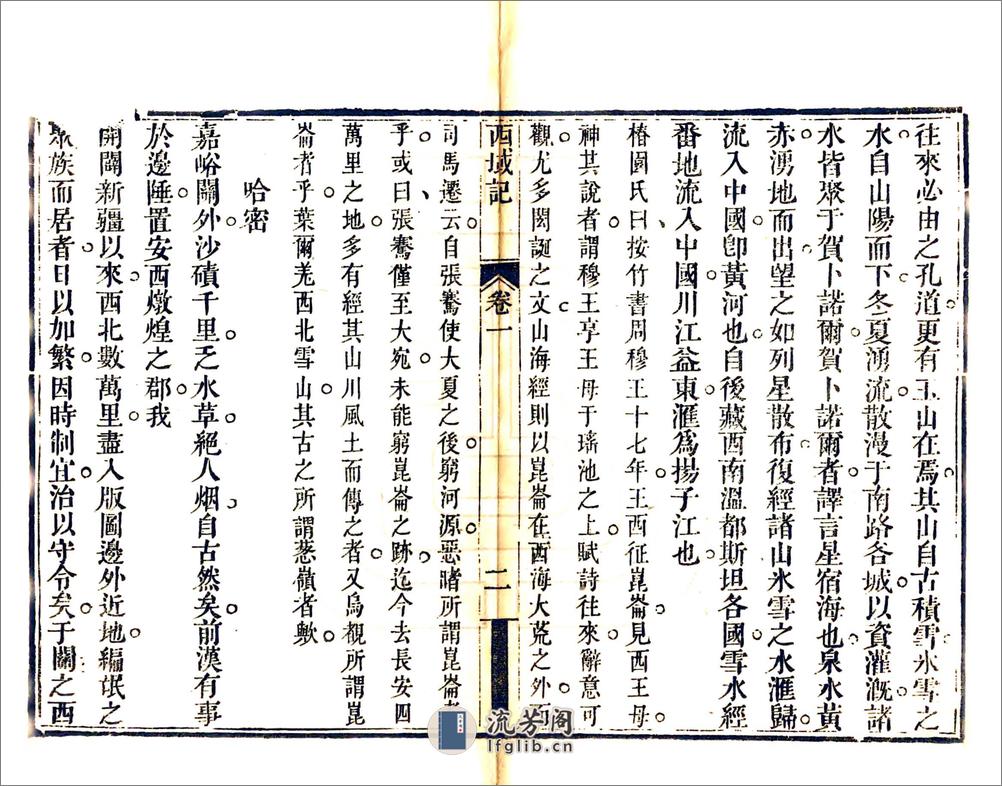 往來必由之孔道更有玉山在焉其山自古積雪氷雪之
水自山陽而下冬夏湧流散漫于南路各城以資灌漑諸
水皆聚于賀卜諾爾賀卜諾爾者譯言星宿海也泉水黃
赤湧地而出望之如列星散布復經諸山氷雪之水滙歸
流入中國卽黃河也自後藏西南溫都斯坦各國雪水經
番地流入中國川江益東滙爲揚子江也
椿園氏曰按竹書周穆王十七年王西征崑崙見西王母
神其說者謂穆王享王母于瑤池之上賦詩往來辭意可
觀尤多閎誕之文山海經則以崑崙在西海大荒之外
西域記
卷一
二
司馬遷云自張騫使大夏之後窮河源惡睹所謂崑崙者
乎或曰張騫僅至大宛未能窮崑崙之跡迄今去長安四
萬里之地多有經其山川風土而傳之者又烏視所謂崑
崙者乎葉爾羌西北雪山其古之所謂葱嶺者歟
哈密
嘉峪關外沙磧千里乏水草絕人烟自古然矣前漢有事
於邊陲置安西燉煌之郡我
開闢新疆以來西北數萬里盡入版圖邊外近地編氓之
聚族而居者日以加繁因時制宜治以守令矣于關之西
流芳阁
lfglib.cn